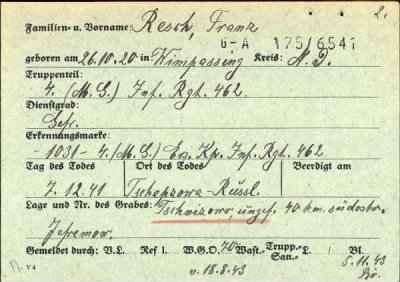 2.
Familien- u. Vorname: Resch, Franz
G-A 175/6541
geboren am 26.10.20 in: Wimpassing Kreis: N.D.
Truppenteil:
4. (M.G.) Inf. Rgt. 462
Dienstgrad:
Gefr.
Erkennungsmarke:
-1031- 4. (M.G.) Ers. Kp. Inf. Rgt. 462
Tag des Todes Ort des Todes Beerdigt am
7.12.41 Tschepzowa-Russl.
Lage und Nr. des Grabes: Tschnizowo, ungef. 40 km südostw.
Jefremow.
Gemeldet durch: V.L. Ref I. W.G.O. 70 Wast.- Trupp.- San.- L. Bl.
V 4 v. 18.8.43 5.11.43